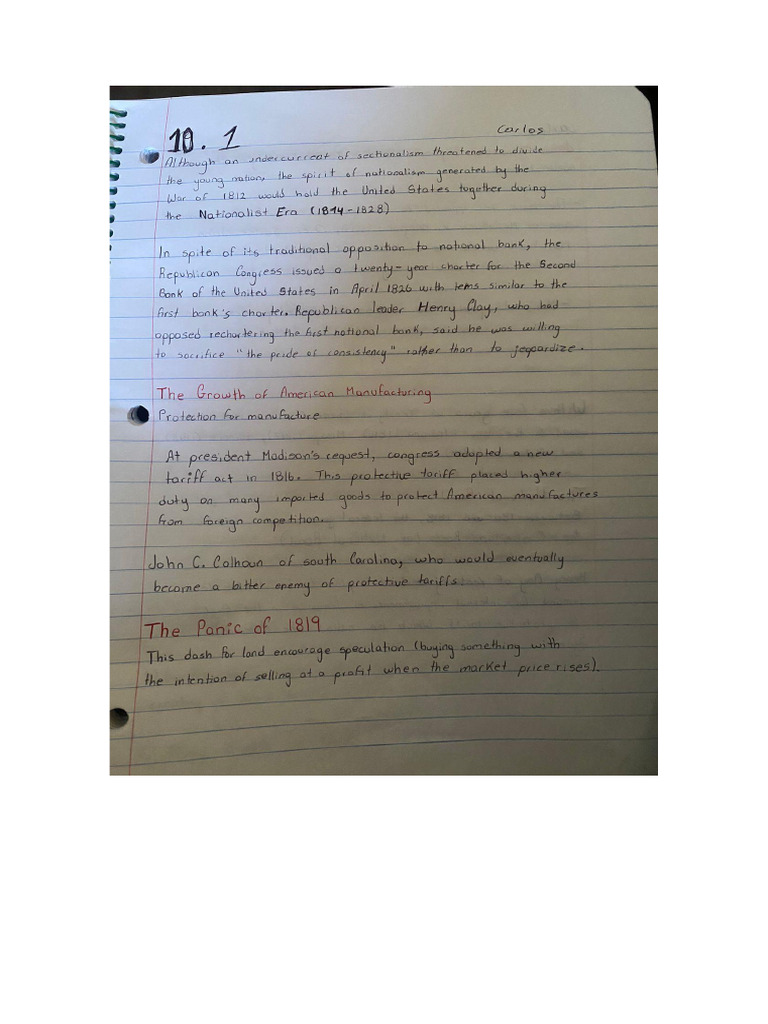 10.1
Carlos
Although an undercurrent of sectionalism threatened to divide
the young nation, the spirit of nationalism generated by the
War of 1812 would hold the United States together during
the Nationalist Era (1814-1828)
In spite of its traditional opposition to national bank, the
Republican Congress issued a twenty-year charter for the Second
Bank of the United States in April 1826 with tems similar to the
first bank's charter. Republican leader Henry Clay, who had
opposed rechartering the first national bank, said he was willing
to sacrifice "the pride of consistency" rather than to jeopardize.
The Growth of American Manufacturing
Protection for manufacture
At president Madison's request, congress adopted a new
tariff act in 1816. This protective tariff placed higher
duty on many imported goods to protect American manufactures
from foreign competition.
John C. Calhoun of south Carolina, who would eventually
become a bitter enemy of protective tariffs.
The Panic of 1819
This dash for land encourage speculation (buying something with
the intention of selling at a profit when the market price rises).